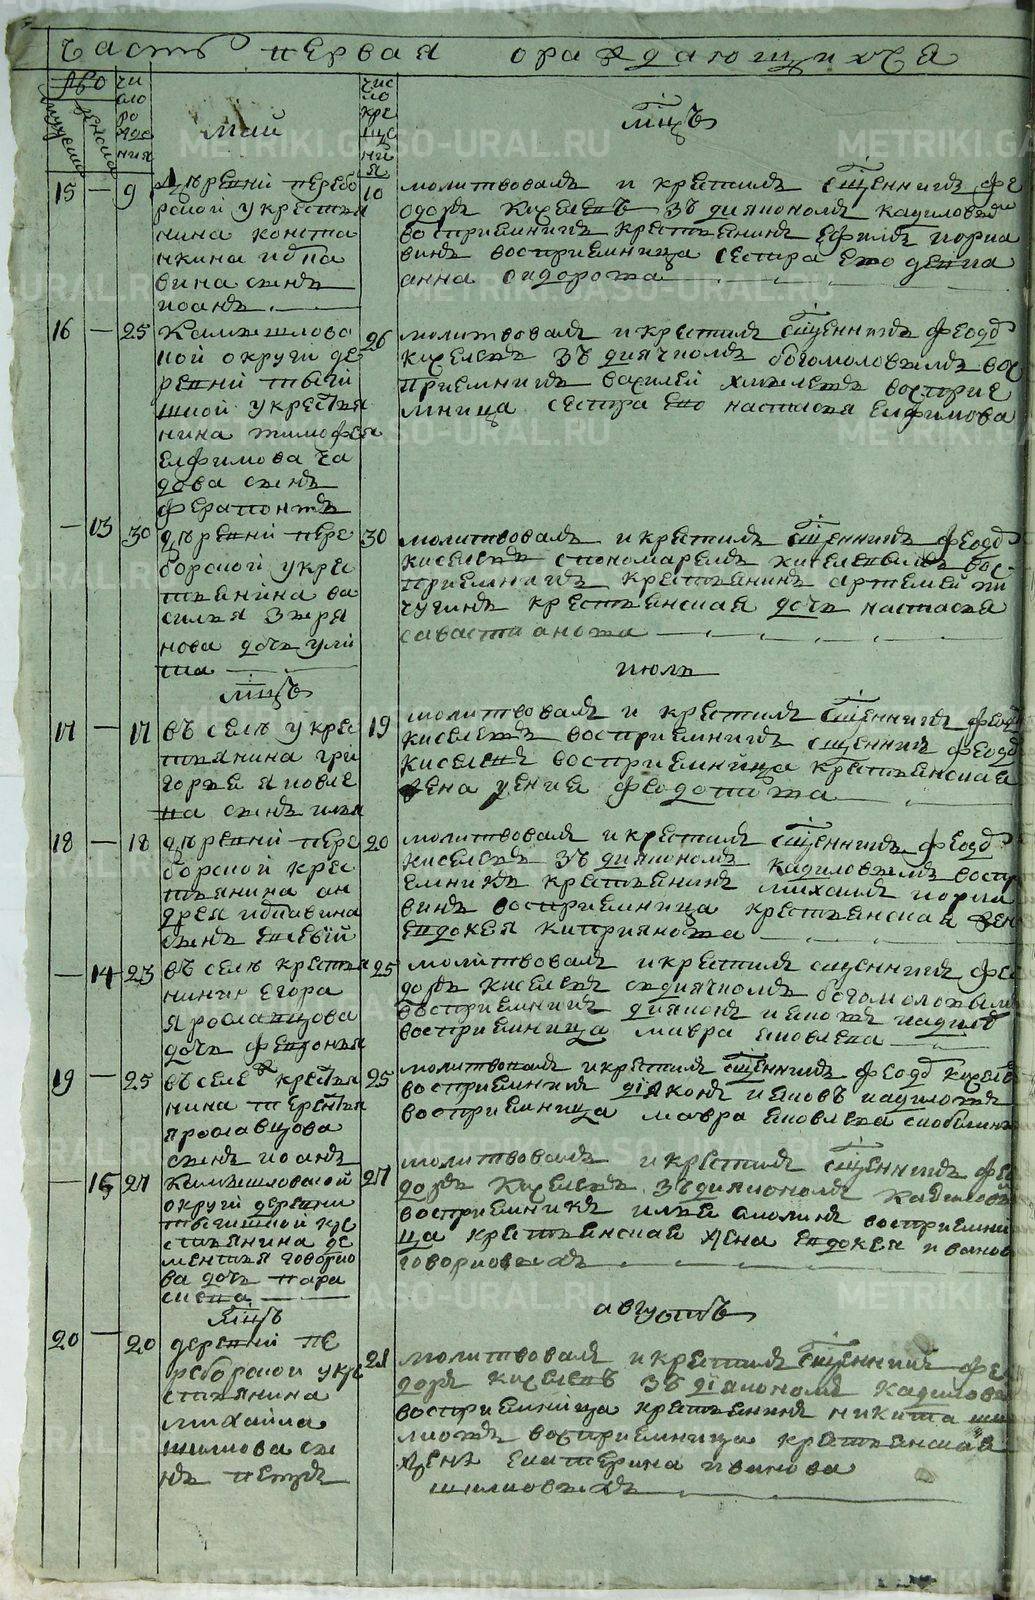 часть первая ораждающихся
число рождения
май
число крещения
мцъ
15 — 9 деревни перебо
рской укрестья
нина конста
вина сынъ
иоанъ
10 молитвовалъ и крестилъ сщенникъ фе
одоръ киселевъ зъ диякономъ кадиловым
восприемникъ крестьянинъ
винъ восприемница сестра его девка
анна сидорова
16 — 25 камышлово
ской округи де
ревни
укрестья
нина тимофея
елфимова ча
дова сынъ
ферапонтъ
26 молитвовалъ и крестилъ сщенникъ феодо
киселевъ зъ диячкомъ богомоловымъ вос
приемникъ василей хмелевъ восприе
мница сестра его настасья елфимова
— 13 30 деревни пере
борской укрес
тьянина ва
силья зыря
нова дочь ули
та
30 молитвовалъ и крестилъ сщенникъ феодо
киселевъ спономаремъ киселевымъ вос
приемникъ крестьянинъ артемей пи
чугинъ крестьянская дочь настасья
савастианова
мцъ июль
17 — 17 въ селе укрес
тьянина гри
горья яковле
ва сынъ илья
19 молитвовалъ и крестилъ сщенникъ феод
киселевъ восприемникъ сщенник феодо
киселевъ восприемница крестьянская
жена федотова
18 — 18 деревни пере
борской крес
тьянина ан
дрея
сынъ елевфий
20 молитвовалъ и крестилъ сщенникъ феодо
киселевъ зъ диякономъ кадиловымъ воспр
емникъ крестьянинъ михаилъ
винъ восприемница крестьянская жен
евдокея киприянова
— 14 23 въ селе крестья
нини егора
ярославцова
дочь февронья
25 молитвовалъ и крестилъ сщенникъ фео
доръ киселевъ сдиячкомъ богомоловым
восприемникъ дияконъ иаковъ кадилов
восприемница мавра яковлева
19 — 25 въ селе крестья
нина терентья
ярославцова
сынъ иоанъ
25 молитвовалъ и крестилъ сщенникъ феодо киселев
восприемникъ дiяконъ иаковъ кадиловъ
восприемница мавра яковлева
— 15 27 камышловской
округи деревни
кре
стьянина де
ментья говорко
ва дочь пара
сковья
27 молитвовалъ и крестилъ сщенникъ фео
доръ киселевъ зъ диякономъ кадилов
восприемникъ илья смолинъ восприемни
ца крестьянская жена евдокея иванов
говорковыхъ
мцъ августъ
20 — 20 деревни пе
реборской укре
стьянина
михайла
шилкова сы
нъ петръ
21 молитвовалъ и крестилъ сщенникъ фео
доръ киселевъ зъ дiякономъ кадилов
восприемница крестьянинъ никита ши
лковъ восприемница крестьянская
жена екатерина иванова
шилковыхъ
METRIKI.GASO-URAL.RU